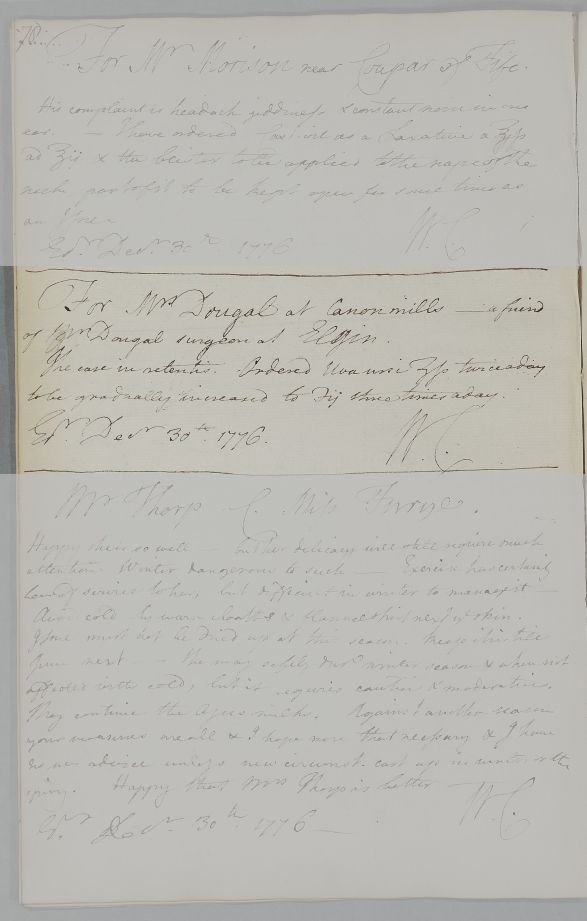 For Mr Morison near Coupar of Fife.
His complaint is headach giddiness & constant noise in one
ear. — I have ordered as a Laxative a ʒss
ad ʒij & the blister to be applied to the nape of the
neck part of it to be kept open for some time as
an Issue
Edr. Decr. 30th 1776 W. C.
For Mrs Dougal at Canonmills — a friend
of Dougal surgeon at Elgin.
The case in retentis. Ordered Uva ursi ʒss twice a day
to be gradually increased to ʒij three times a day.
Edr. Decr 30th. 1776. W. C.
Mr Thorp C. Miss
Happy she is so well — but her delicacy will still require much
attention. Winter dangerous to such — Exercise has certainly
been of service to her, but difficult in winter to manage it —
Avoid cold by warm cloaths & flannel shirt next ye skin.
Issue must not be dried up at this season. Keep it in till
June next — She may safely winter season & when not
affected with cold, but it requires caution & moderation.
May continue the Asses milk. Against another season
your measures are all & I hope more than necessary & I have
no new advice unless new circumst. cast up in winter or the
spring. Happy that Mrs Thorp is better
Edr Decr. 30th 1776 — W. C.